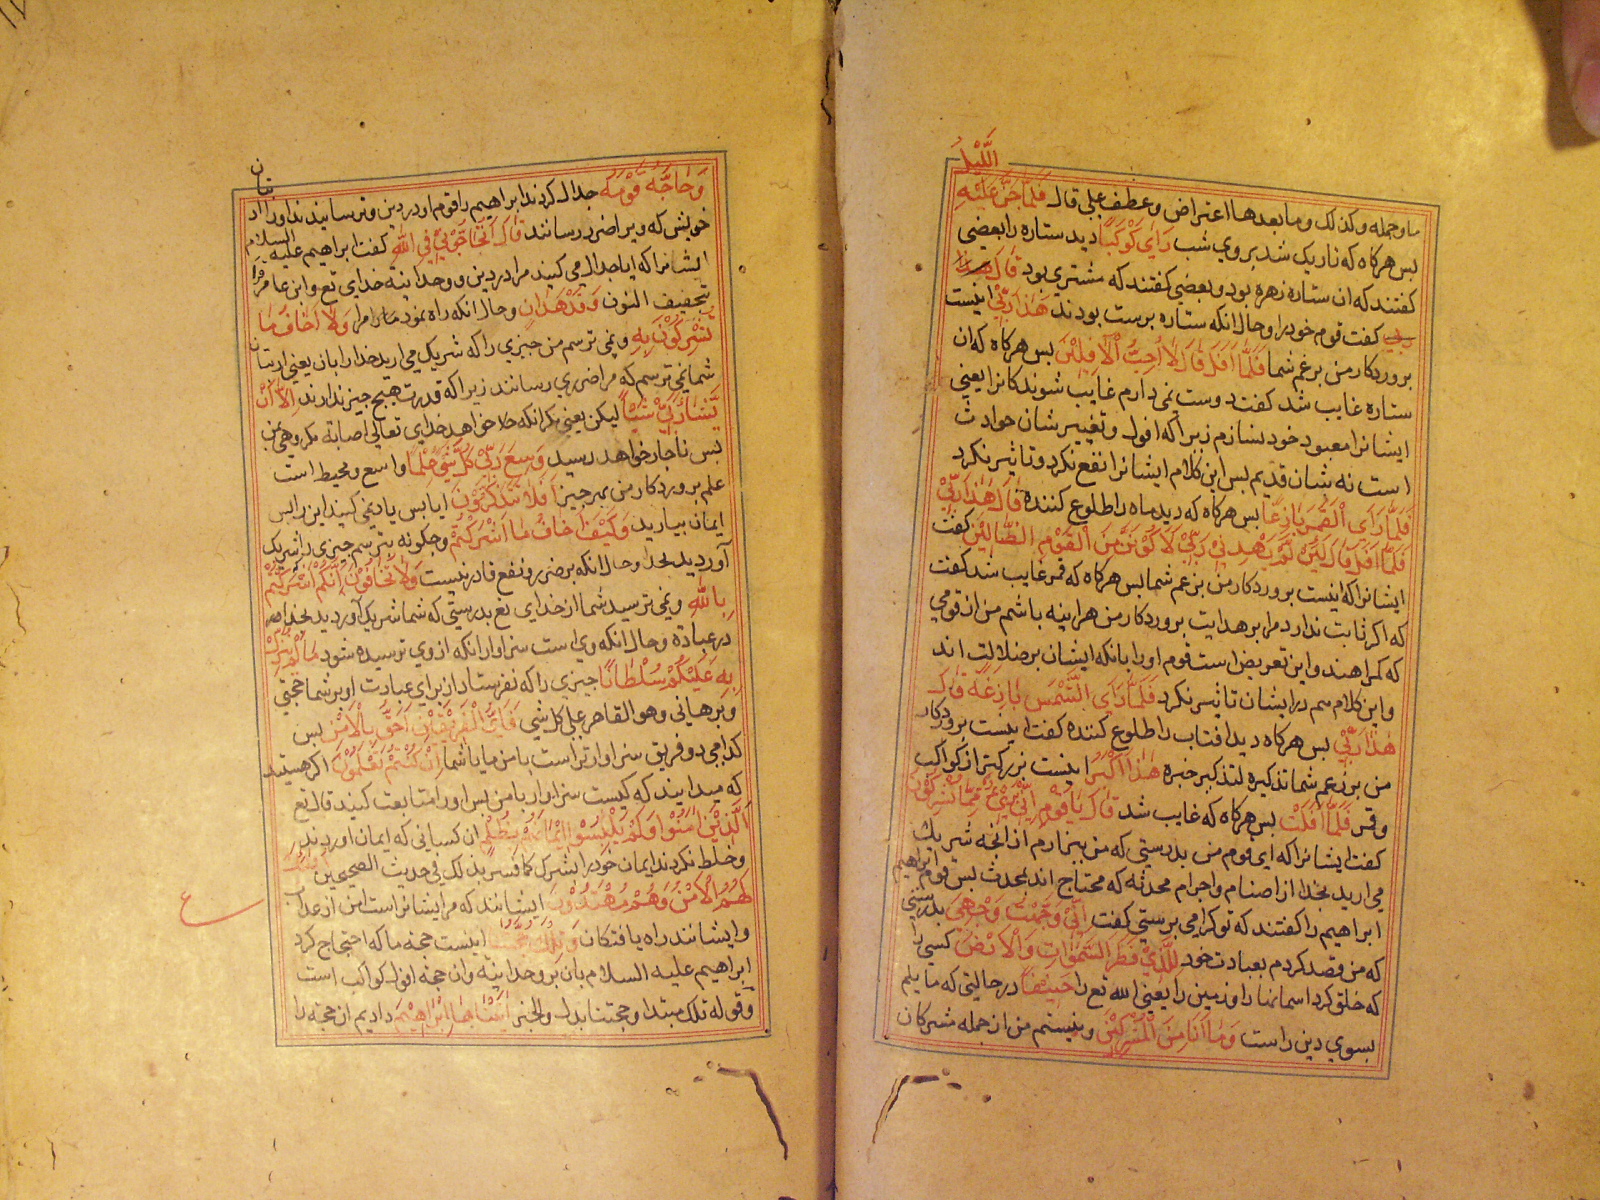 اللَّيْلُ
ما وجمله وكذلك وما بعدها اعتراض وعطف على قال فَلَمَّا جَنَّ عَلَيْهِ
بس هركاه كه تاريك شد بروي شب رَاٰي كَوْكَبًا ديد ستاره را بعضي
كفتند كه ان ستاره زهره بود و بعضي كفتند كه مشتري بود قال هذا
ربي كفت قوم خود را وحال انكه ستاره برست بودند هَٰذَا رَبِّيْ اينست
بروردكار من بر زعم شما فَلَمَّا اَفَلَ قَالَ لَا اُحِبُّ الْاٰفِلِيْنَ بس هركاه كه ان
ستاره غايب شد كفت دوست نمي دارم غايب شوندكانرا يعني
ايشانرا معبود خود نسازم زيرا كه افول وتغيير شان حوادث
است نه شان قديم بس اين كلام ايشانرا نفع نكرد وتاثير نكرد
فَلَمَّا رَاَي الْقَمَرَ بَازِغًا بس هركاه كه ديد ماه را طلوع كننده قَالَ هَٰذَا رَبِّيْ
فَلَمَّا اَفَلَ قَالَ لَئِنْ لَّمْ يَهْدِنِيْ رَبِّيْ لَاَكُوْنَنَّ مِنَ الْقَوْمِ الضَّالِّيْنَ كفت
ايشانرا كه اينست بروردكار من بزعم شما بس هركاه كه قمر غايب شد كفت
كه اكر ثابت ندارد مرا بر هدايت بروردكار من هراينه باشم من از قومي
كه كمراهند واين تعريض است قوم او را بانكه ايشان بر ضلالت اند
واين كلام هم در ايشان تاثير نكرد فَلَمَّا رَاَي الشَّمْسَ بَازِغَةً قَالَ
هَٰذَا رَبِّيْ بس هركاه ديد افتاب را طلوع كننده كفت اينست بروردكار
من بزعم شما تذكيره لتذكير خبره هَٰذَا اَكْبَرُ اينست بزركتر از كواكب
وقمر فَلَمَّا اَفَلَتْ بس هركاه كه غايب شد قَالَ يَا قَوْمِ اِنِّيْ بَرِيْءٌ مِّمَّا تُشْرِكُوْنَ
كفت ايشانرا كه اي قوم من بدرستي كه من بيزارم از انجه شريك
مي اريد بخدا از اصنام واجرام محدثه كه محتاج اند بمحدث بس قوم ابراهيم
ابراهيم را كفتند كه تو كرا مي برستي كفت اِنِّيْ وَجَّهْتُ وَجْهِيَ بدرستي
كه من قصد كردم بعبادت خود لِلَّذِيْ فَطَرَ السَّمٰوَاتِ وَالْاَرْضَ كسي را
كه خلق كرد اسمانها را و زمين را يعني الله تع را حَنِيْفًا در حالتي كه مايلم
بسوي دين راست وَمَا اَنَا مِنَ الْمُشْرِكِيْنَ ونيستم من از جمله مشركان
وَحَاجَّهُ قَوْمُهُ جدال كردند ابراهيم را قوم او در دين وترسانيدند او را از بتان
خويش كه ويرا ضرر رسانند قَالَ اَتُحَاجُّوْنِّيْ فِي اللهِ كفت ابراهيم عليه السلام
ايشانرا كه ايا جدال مي كنيد مرا در دين و وحدانيته خداي تع وابن عامر قرا
بتخفيف النون وَقَدْ هَدَانِ وحال انكه راه نمود مارا مرا وَلَا اَخَافُ مَا
تُشْرِكُوْنَ بِهِ ونمي ترسم من جيزي را كه شريك مي اريد خدا را بان يعني از بتان
شما نمي ترسم كه مرا ضرري رسانند زيرا كه قدرت هيج جيز ندارند اِلَّا اَنْ
يَّشَاءَ رَبِّيْ شَيْئًا ليكن يعني مكر انكه خواهد خداي تعالى اصابة مكروهي بمن
بس ناجار خواهد رسيد وَسِعَ رَبِّيْ كُلَّ شَيْءٍ عِلْمًا واسع ومحيط است
علم بروردكار من بهر جيز اَفَلَا تَتَذَكَّرُوْنَ ايا بس ياد نمي كنيد اين را بس
ايمان بياريد وَكَيْفَ اَخَافُ مَا اَشْرَكْتُمْ وجكونه بترسم جيزي را شريك
آورديد بخدا وحال انكه بر ضرر ونفع قادر نيست وَلَا تَخَافُوْنَ اَنَّكُمْ اَشْرَكْتُمْ
بِاللهِ ونمي ترسيد شما از خداي تع بدرستي كه شما شريك آورديد بخدا
در عبادة وحال انكه وي است سزاوار انكه از وي ترسيده شود مَا لَمْ يُنَزِّلْ
بِهِ عَلَيْكُمْ سُلْطَانًا جيزي را كه نفرستاد از براي عبادت او بر شما حجتي
وبرهاني وهو القاهر على كل شي فَاَيُّ الْفَرِيْقَيْنِ اَحَقُّ بِالْاَمْنِ بس
كدامي دو فريق سزاوارتر است بامن ما يا شما اِنْ كُنْتُمْ تَعْلَمُوْنَ اكر هستيد
كه ميدانيد كه كيست سزاوار بامن بس او را متابعت كنيد قال تع
اَلَّذِيْنَ اٰمَنُوْا وَلَمْ يَلْبِسُوْا اِيْمَانَهُمْ بِظُلْمٍ ان كساني كه ايمان اوردند
وخلط نكردند ايمان خود را بشرك كما فسر بذلك في حديث الصحيحين اُولٰئِكَ
لَهُمُ الْاَمْنُ وَهُمْ مُّهْتَدُوْنَ ايشانند كه مر ايشانراست امن از عذاب
وايشانند راه يافتكان وَتِلْكَ حُجَّتُنَا اينست حجة ما كه احتجاج كرد
ابراهيم عليه السلام بان بر وحدانيته وان حجة افول كواكب است
وقوله تلك مبتدا وحجتنا بدل والخبر اٰتَيْنَاهَا اِبْرَاهِيْمَ داديم ان حجة را